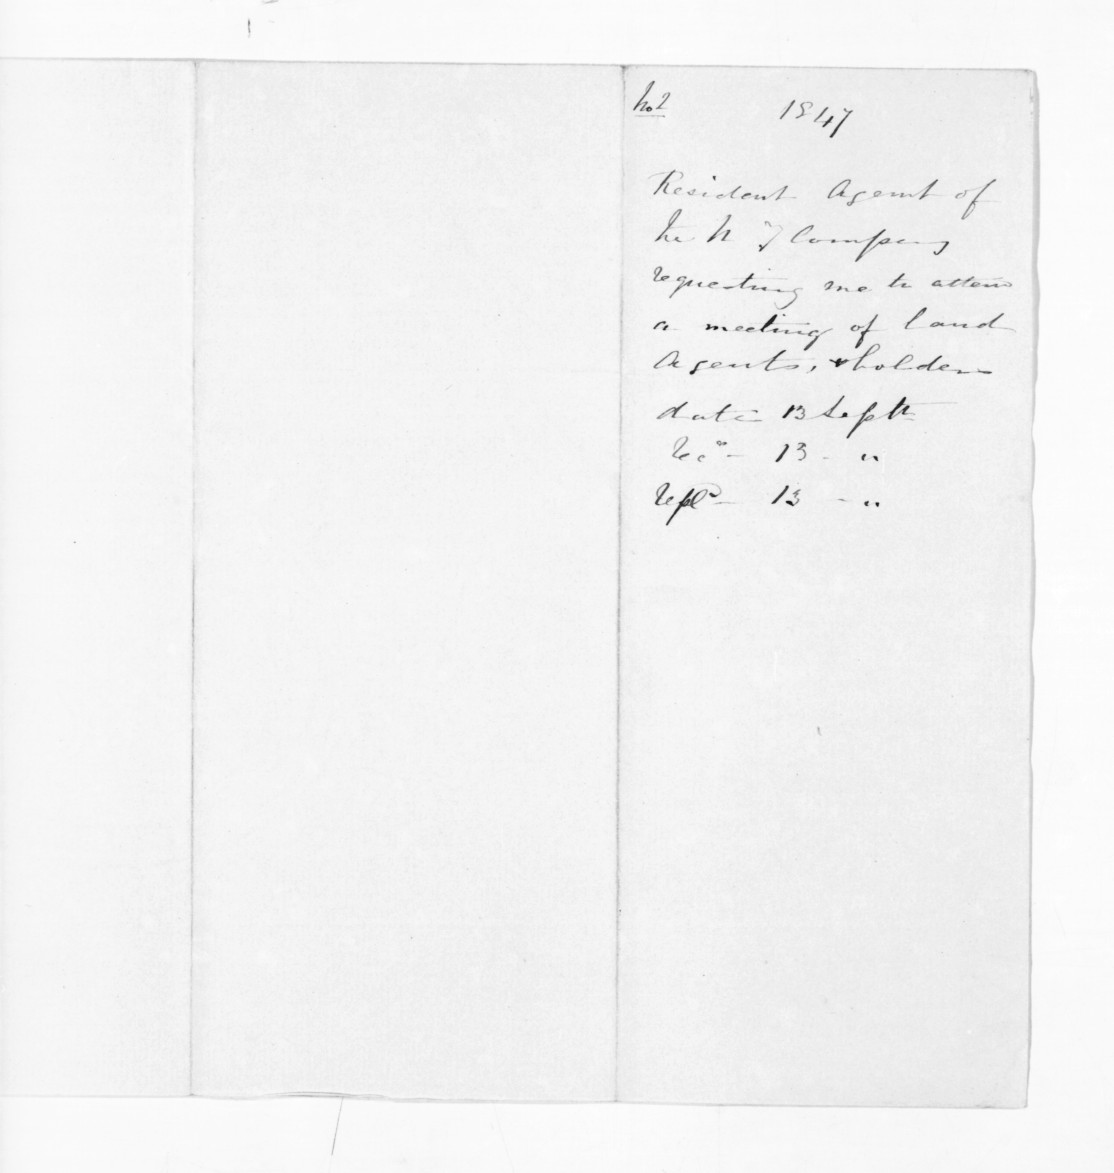 No 2
1847
Resident Agent of
the N Z Company
requesting me to attend
a meeting of land
Agents, & holders
date 13 Septr
Recd - 13 - "
Repld - 13 - "